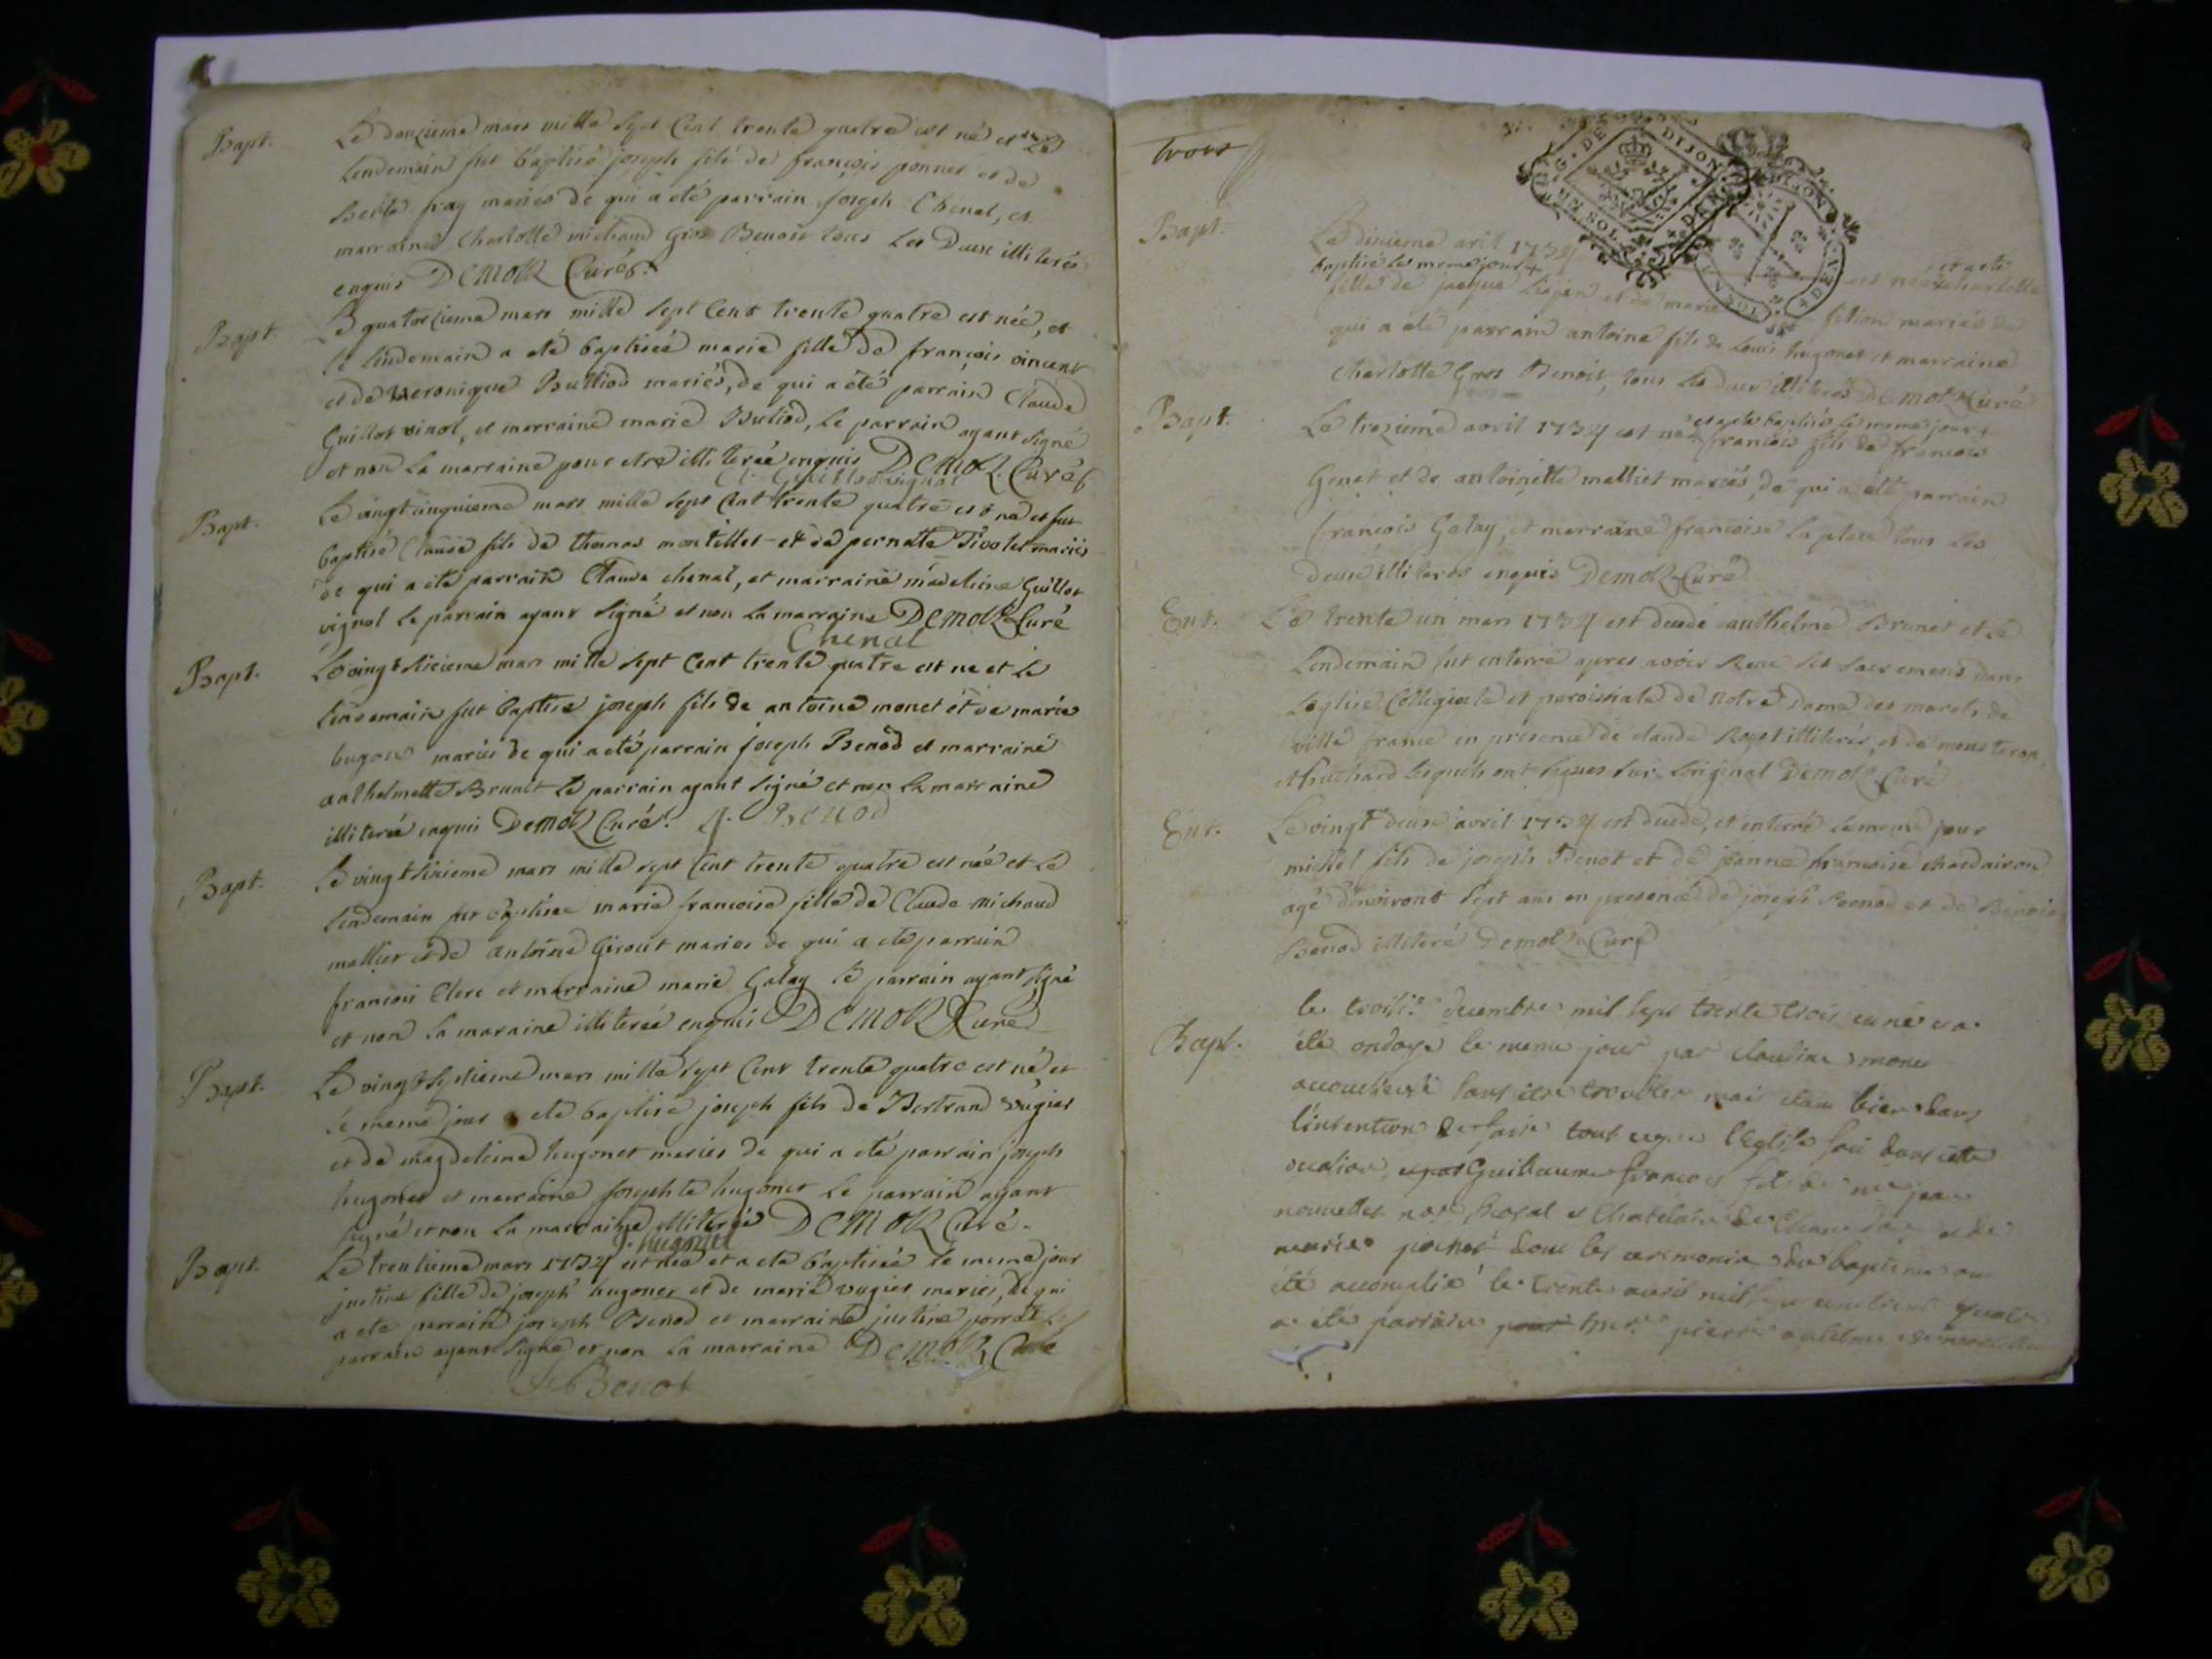 Bapt. Le douzieme mars mille sept Cent trente quatre est né et Le
Lendemain fut baptisé joseph fils de françois ponnet et de
fray mariés de qui a été parrain joseph Chenal, et
marraine Charlotte michaud Gros Benoit tous Les Deux illiterés
enquis DEMOLZ Curé
Bapt. Le quatorzieme mars mille sept Cent trente quatre est née, et
le lindemain a eté baptiseé marie fille de françois vincent
et de veronique Bulliod mariés, de qui a été parrain Claude
Guillot vinal, et marraine marie Buliod, Le parrain ayant signé
et non La marraine pour etre illitereé enquis DEMOLZ Curé
Cl. Guillot vignal
Bapt. Le vingt cinquieme mars mille sept Cent trente quatre est né et fut
baptisé Claude fils de thomas montillet et de pernette Tivolet mariés
de qui a eté parrain Claude chenal, et marraine madeleine Guillot
vignal Le parrain ayant signé et non La marraine DEMOLZ Curé
Chenal
Bapt. Le vingt sixieme mars mille sept Cent trente quatre est né et le
lendemain fut baptisé joseph fils de antoine monet et de marie
hugon mariés de qui a eté parrain joseph Benod et marraine
anthelmette Brunet Le parrain ayant signé et non La marraine
illitereé enquis DEMOLZ Curé. J. Benod
Bapt. Le vingt sixieme mars mille sept Cent trente quatre est née et Le
Lendemain fut baptisee marie francoise fille de Claude michaud
malliet et de antoine Girout mariés de qui a eté parrain
francois Clerc et marraine marie Galay Le parrain ayant signé
et non La maraine illitereé enquis DEMOLZ Curé
Bapt. Le vingt septieme mars mille sept Cent trente quatre est né et
le meme jour a eté baptisé joseph fils de Bertrand vugiet
et de magdeleine hugonet mariés de qui a eté parrain joseph
hugonet et marraine josephte hugonet Le parrain ayant
signé et non La marraine illitereé DEMOLZ Curé.
J. hugonet
Bapt. Le trentieme mars 1734 est née et a eté baptiseé le meme jour
justine fille de joseph hugonet et de marie vugiet mariés, de qui
a eté parrain joseph Benod et marraine justine porret Le
parrain ayant signé et non La marraine DEMOLZ Curé
J. Benot
trois
G. DE DIJON
Bapt. Le dixieme avril 1734 est née et a eté
baptisé le meme jour + charlotte
fille de jaque et de marie fillion mariés de
qui a eté parrain antoine fils de Louis hugonet et marraine
charlotte Gros Benoit, tous Les deux illiterés DEMOLZ Curé
Bapt. Le trezieme avril 1734 est né + et a eté baptisé le meme jour +
francois fils de francois
Genet et de antoinette malliet mariés, de qui a eté parrain
francois Galay, et marraine francoise La place tous Les
deux illiterés enquis DEMOLZ Curé
Ent. Le trente un mars 1734 est decedé anthelme Brunet et Le
Lendemain fut enterré apres avoir Receu ses sacremens dans
Leglise Collegiale et paroissiale de notre Dame des marets de
ville franche en presence de claude Rapt illiterés, et de
lesquels ont signes sur Loriginal DEMOLZ Curé
Ent. Le vingt deux avril 1734 est decedé, et enterré Le meme jour
michel fils de joseph Benot et de jeanne francoise chardairon
agé denvirons sept ans en presence de joseph Benod et de Benoit
Benod illiteré DEMOLZ Curé
Bapt. le trois.e decembre mil sept trente trois est né et a
été ondoyé le meme jour par claudine monet
accoucheuse sans etre troublée mais etant bien dans
l'intention de faire tout ce que l'Eglise fait dans cette
occasion Guillaume francois fils de me jean
not. Royal et Chatelain de et de
marie pochet dont les ceremonies du bapteme ont
été accomplie le trente avril mil sept cent trente quatre
a été parrain pierre antelme